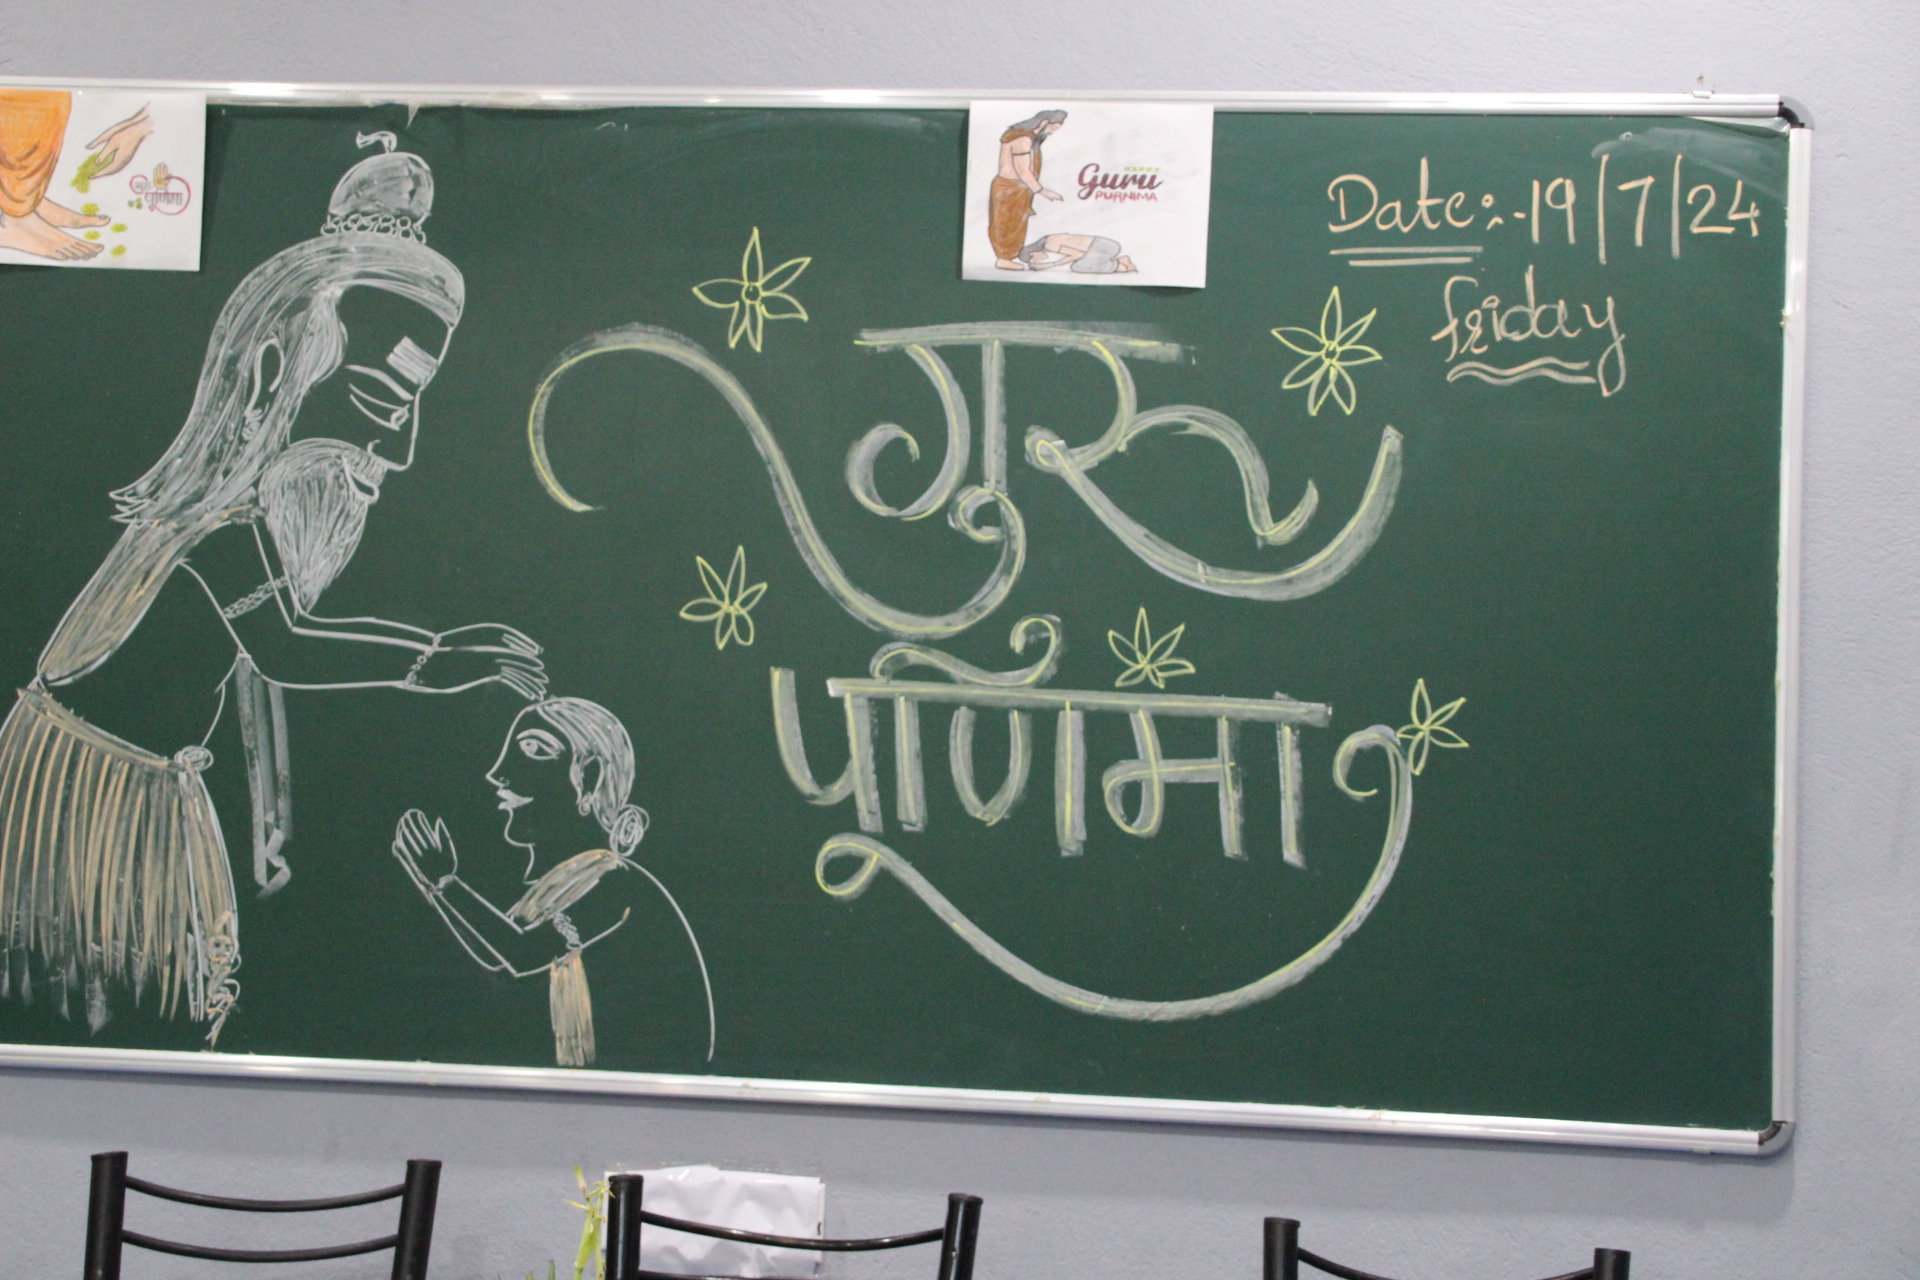 गुरु
पूर्णिमा
HAPPY
Guru
PURNIMA
Date:-19/7/24
friday
गुरू
पूर्णिमा